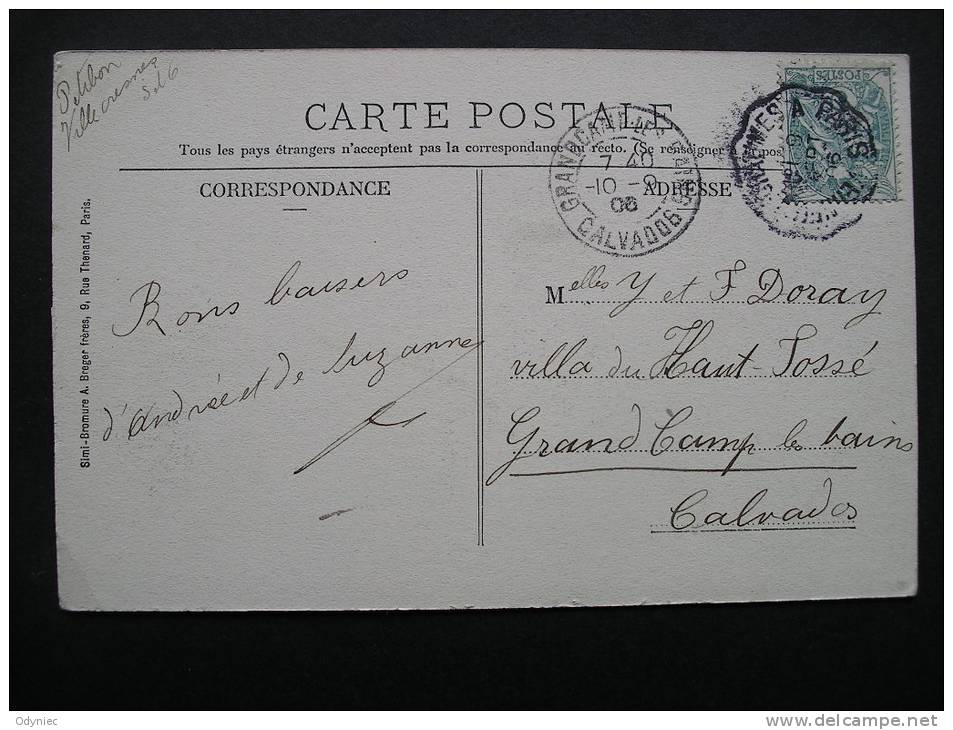 Petitbon
Villecresnes
S et 6
CARTE POSTALE
Tous les pays étrangers n'acceptent pas la correspondance au recto. (Se renseigner à la poste
CORRESPONDANCE
ADRESSE
GRANDCAMP-LES-BAINS
7 40
-10 -9
06
CALVADOS
A PARIS
POSTES
Simi-Bromure A. Breger frères, 9, Rue Thenard, Paris.
Bons baisers
d'andrée et de Suzanne
Melles Y et F Doray
villa du Haut-Fossé
Grand Camp les bains
Calvados
Odyniec
www.delcampe.net